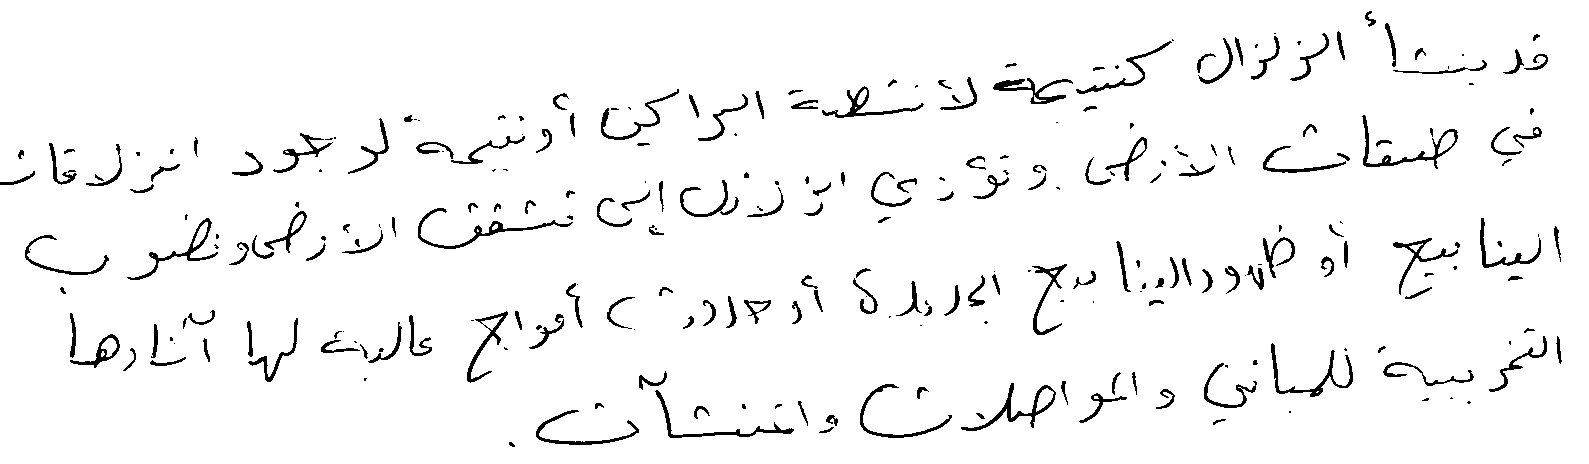 قد ينشأ الزلزال كنتيجة لأنشطة البراكين أو نتيجة لوجود انزلاقات
في طبقات الأرض وتؤدي الزلازل إلى تشقق الأرض ونضوب
الينابيع أو ظهور الينابيع الجديدة أو حدوث أمواج عالية لها آثارها
التخريبية للمباني والمواصلات والمنشآت.